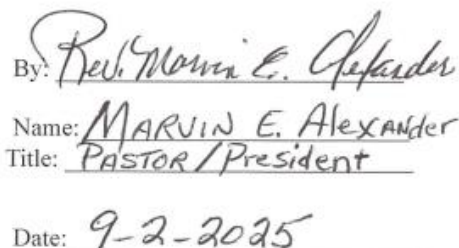 By: Rev. Marvin E. Alexander
Name: MARVIN E. AlexANder
Title: PASTOR/President
Date: 9-2-2025